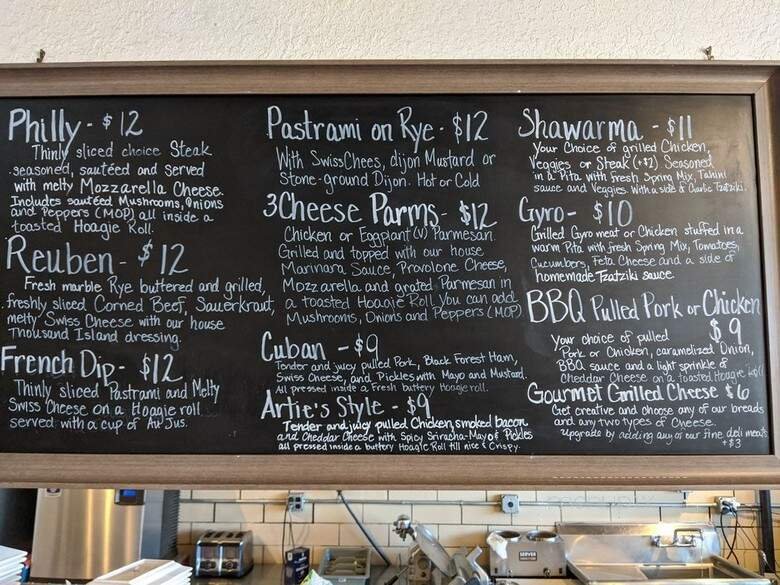 Philly - $12
Thinly sliced choice Steak
seasoned, sautéed and served
with melty Mozzarella Cheese.
Includes sautéed Mushrooms, Onions
and Peppers (MOP) all inside a
toasted Hoagie Roll.
Reuben - $12
Fresh marble Rye buttered and grilled,
freshly sliced Corned Beef, Sauerkraut,
melty Swiss Cheese with our house
Thousand Island dressing.
French Dip - $12
Thinly sliced Pastrami and Melty
Swiss Cheese on a Hoagie roll
served with a cup of Au Jus.
Pastrami on Rye - $12
With Swiss Chees, dijon Mustard or
Stone-ground Dijon. Hot or Cold
3 Cheese Parms - $12
Chicken or Eggplant (V) Parmesan.
Grilled and topped with our house
Marinara Sauce, Provolone Cheese,
Mozzarella and grated Parmesan in
a toasted Hoagie Roll You can add
Mushrooms, Onions and Peppers (MOP)
Cuban - $9
Tender and juicy pulled Pork, Black Forest Ham,
Swiss Cheese, and Pickles with Mayo and Mustard.
All pressed inside a fresh buttery Hoagie roll.
Artie's Style - $9
Tender and juicy pulled Chicken, smoked bacon
and Cheddar Cheese with Spicy Sriracha-Mayo & Pickles
all pressed inside a buttery Hoagie Roll till nice & Crispy.
Shawarma - $11
Your Choice of grilled Chicken,
Veggies or Steak (+$2) Seasoned
in a Pita with fresh Spring Mix, Tahini
sauce and Veggies. With a side of Garlic Tzatziki.
Gyro - $10
Grilled Gyro meat or Chicken stuffed in a
warm Pita with fresh Spring Mix, Tomatoes,
Cucumbers, Feta Cheese and a side of
homemade Tzatziki sauce.
BBQ Pulled Pork or Chicken
$9
Your choice of pulled
Pork or Chicken, caramelized Onion,
BBQ sauce and a light sprinkle of
Cheddar Cheese on a toasted Hoagie Roll
Gourmet Grilled Cheese $6
Get creative and choose any of our breads
and any two types of Cheese.
Upgrade by adding any of our fine deli meats
+$3
SERVER